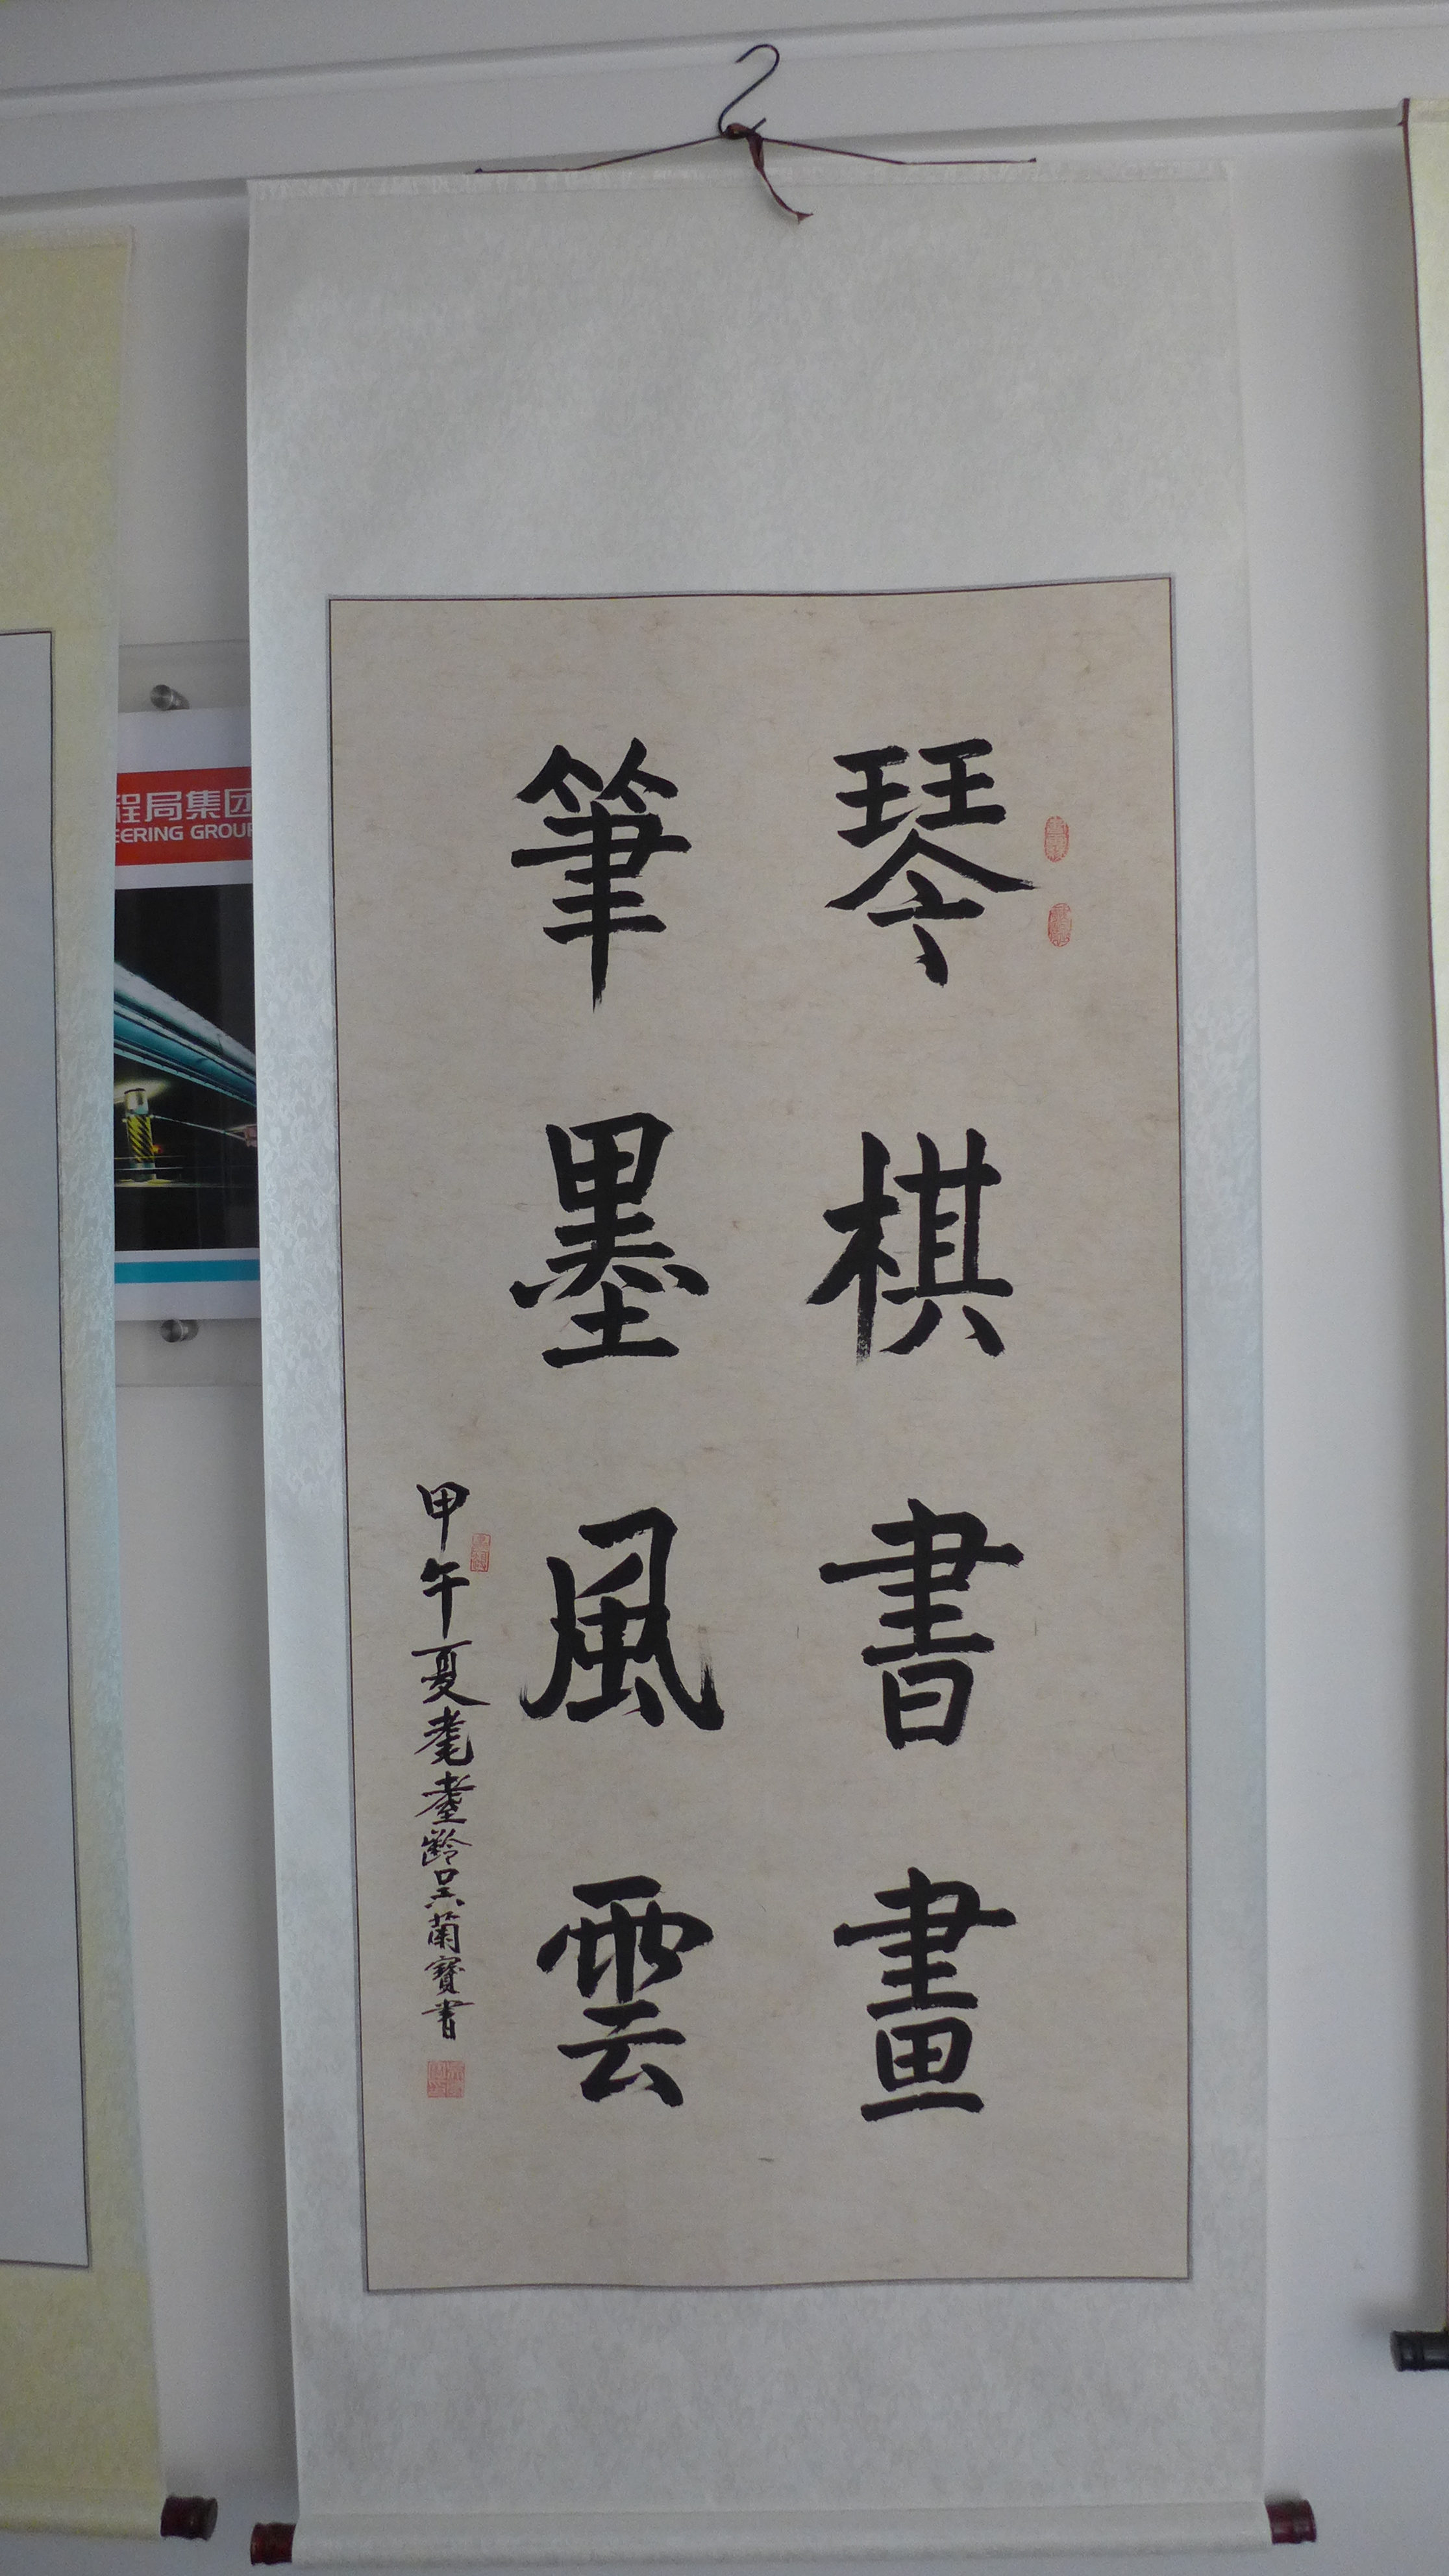 琴棋書畫
筆墨風雲
甲午夏耄耋齡吴蘭寶書
程局集团
EERING GROUP